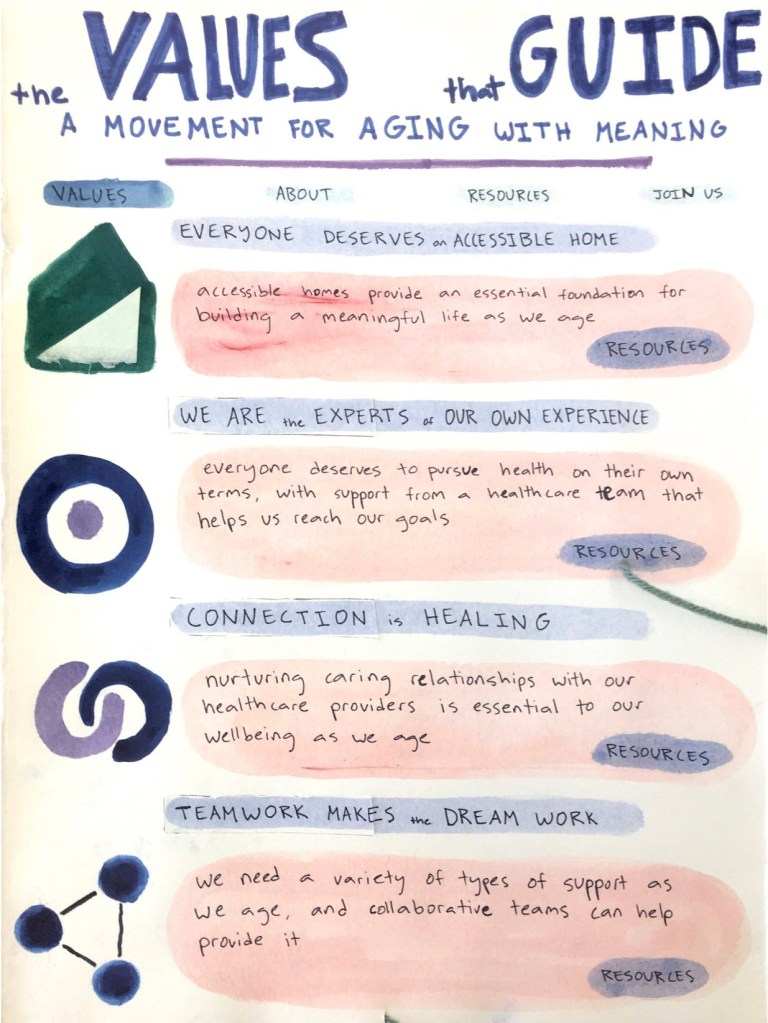 the VALUES that GUIDE
A MOVEMENT FOR AGING WITH MEANING
VALUES ABOUT RESOURCES JOIN US
EVERYONE DESERVES an ACCESSIBLE HOME
accessible homes provide an essential foundation for
building a meaningful life as we age
RESOURCES
WE ARE the EXPERTS of OUR OWN EXPERIENCE
everyone deserves to pursue health on their own
terms, with support from a healthcare team that
helps us reach our goals
RESOURCES
CONNECTION is HEALING
nurturing caring relationships with our
healthcare providers is essential to our
wellbeing as we age
RESOURCES
TEAMWORK MAKES the DREAM WORK
we need a variety of types of support as
we age, and collaborative teams can help
provide it
RESOURCES